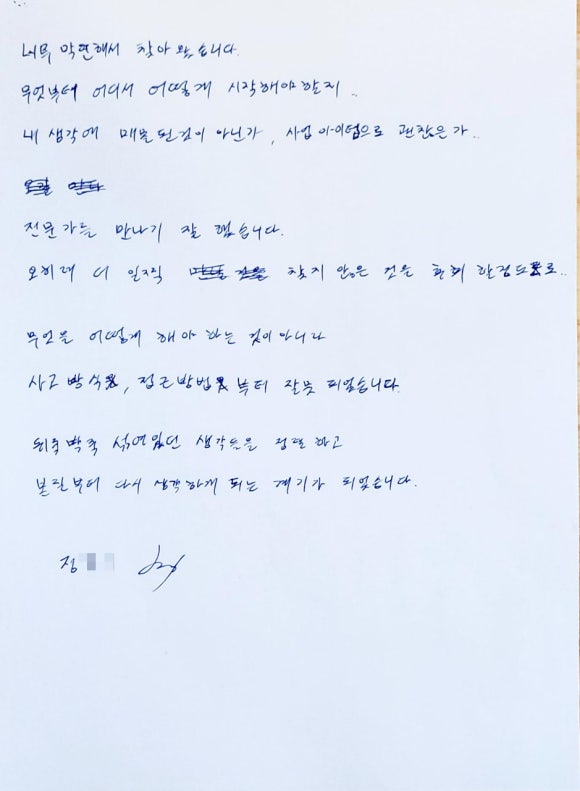 너무 막연해서 찾아 왔습니다.
무엇부터 어디서 어떻게 시작해야 할지..
내 생각에 매몰 된것이 아닌가, 사업 아이템으로 괜찮은가..
전문가를 만나기 잘 했습니다.
오히려 더 일찍 찾지 않은 것을 후회 할정도로..
무엇을 어떻게 해야 하는 것이 아니라
사고 방식, 접근방법부터 잘못 되었습니다.
뒤죽박죽 섞여있던 생각들을 정렬 하고
본질부터 다시 생각하게 되는 계기가 되었습니다.
정